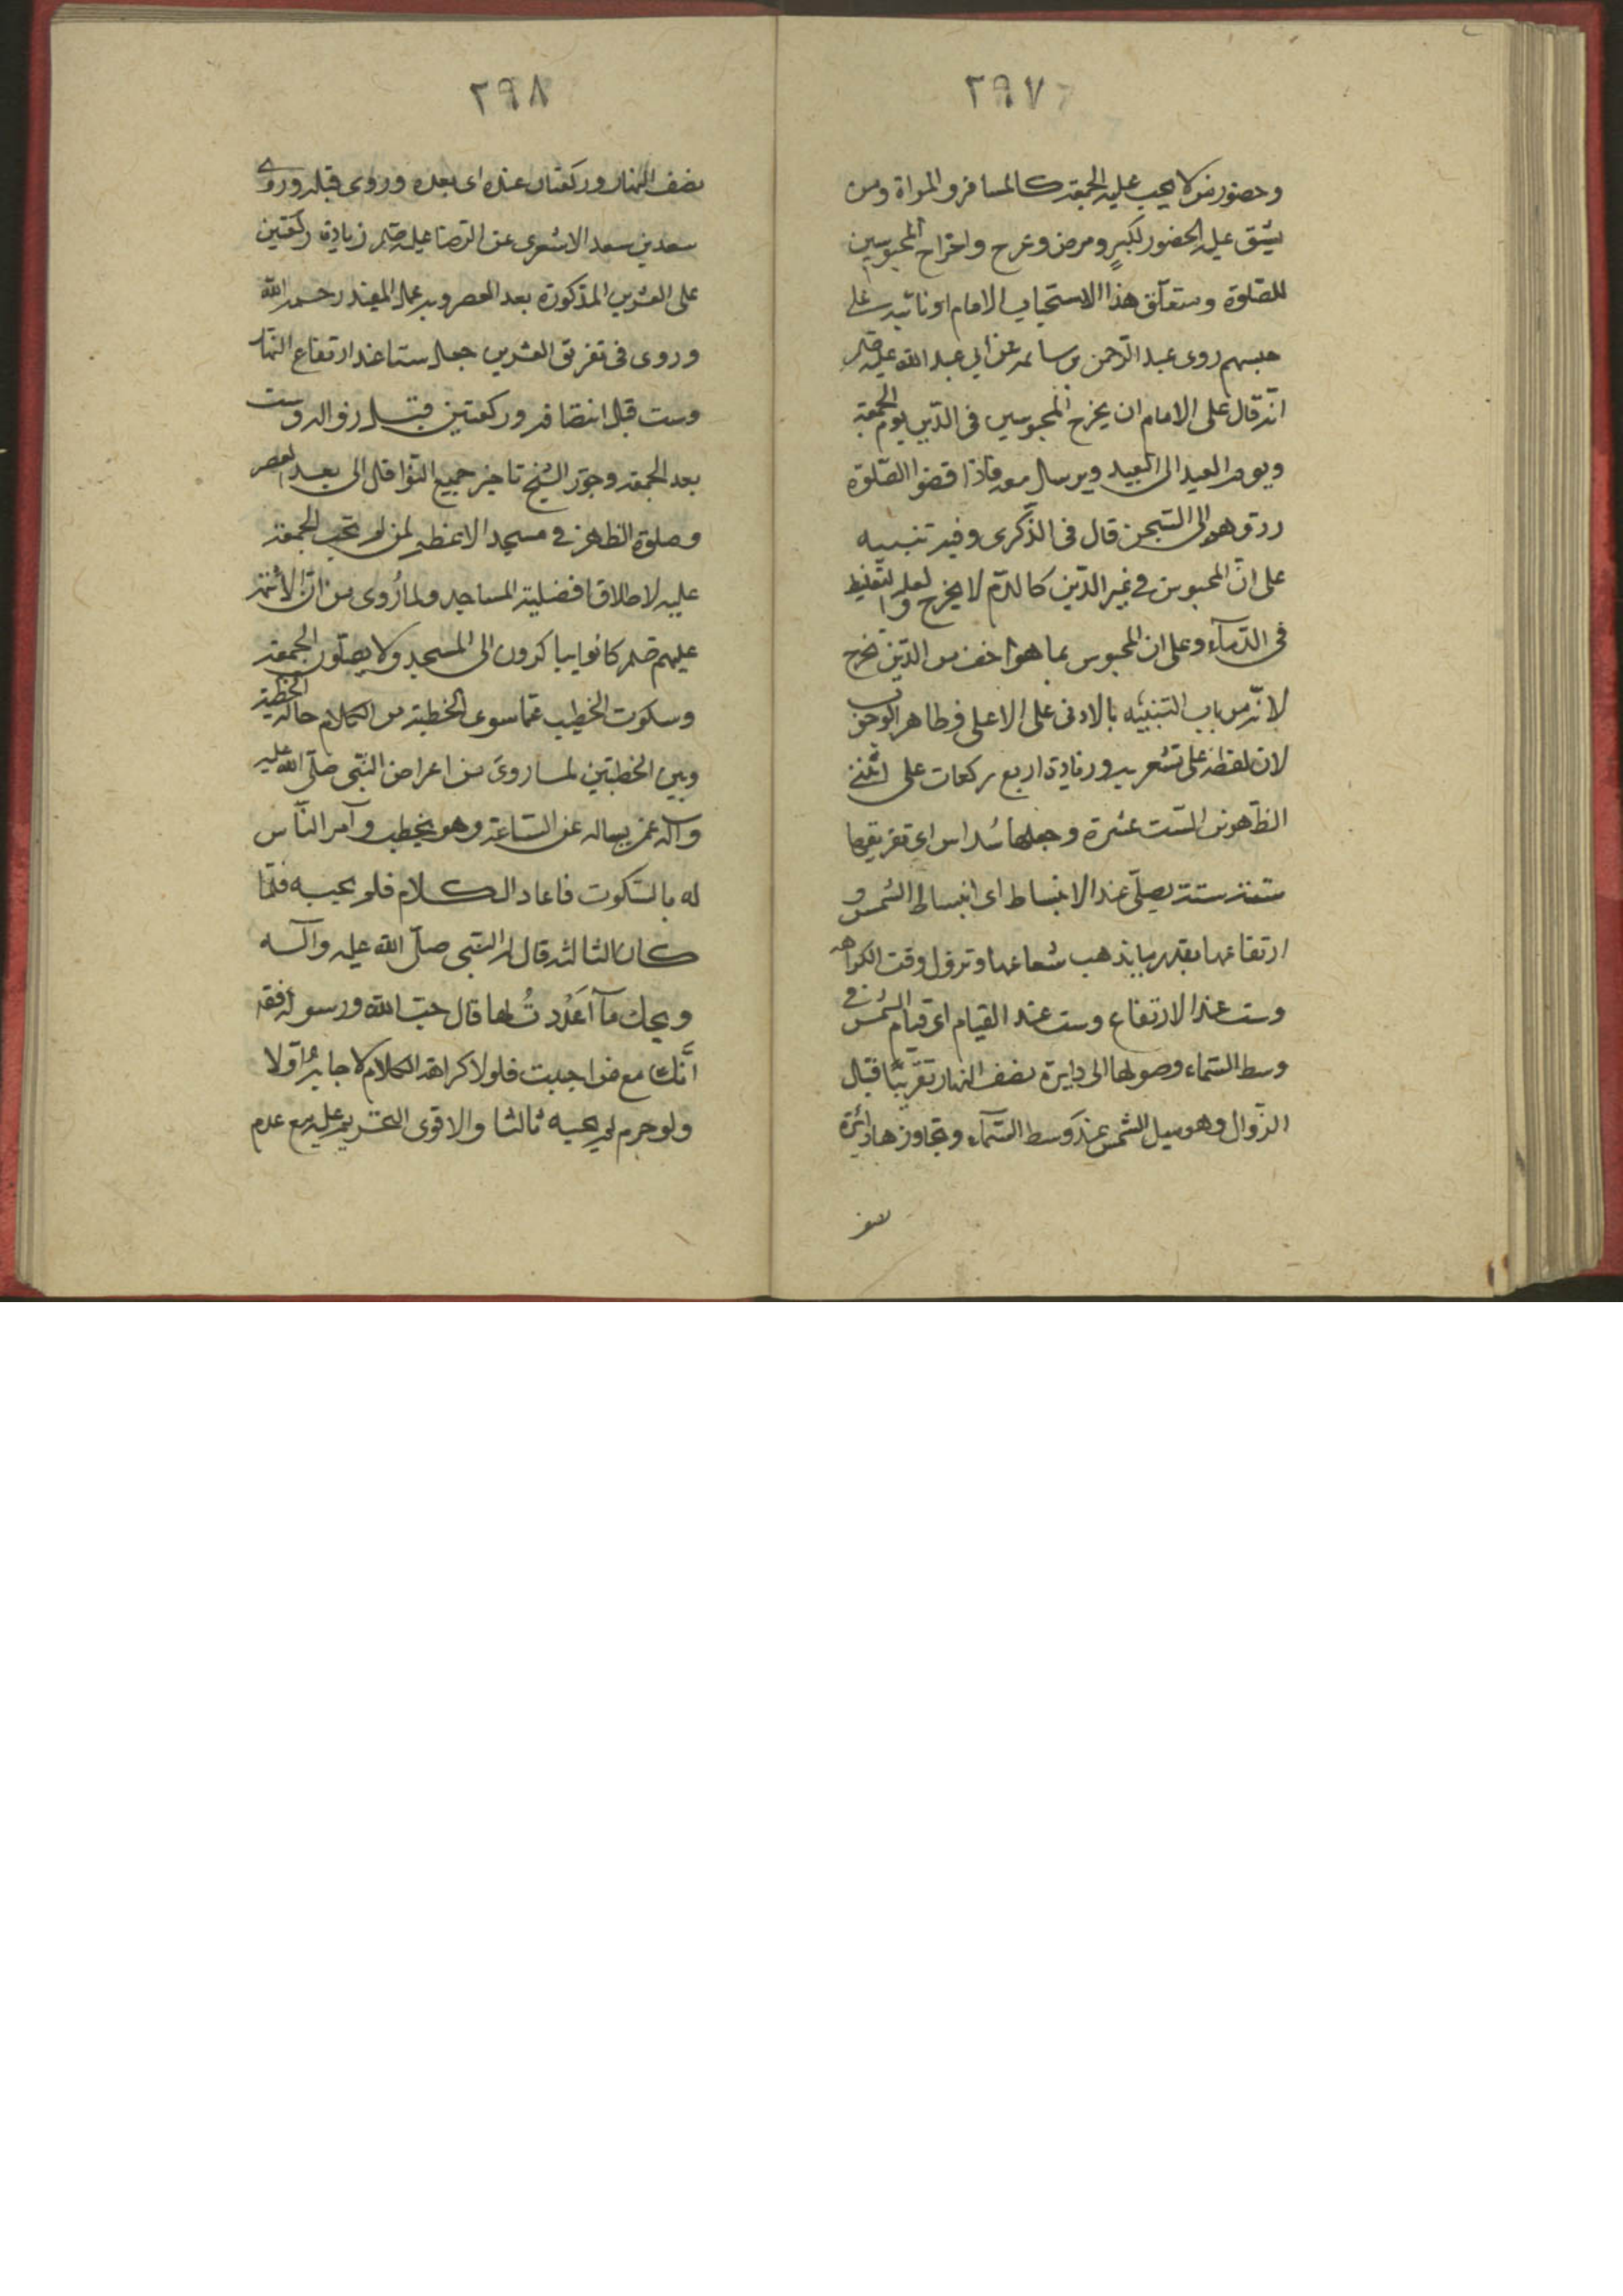 ٢٩٧
وحضور من لا يجب عليه الجمعة كالمسافر والمراة ومن
يشق عليه الحضور لكبرٍ ومرض وعرج واخراج المحبوسين
للصّلوة ومتعلّق هذا الاستحباب الامام او نائبه على
حبسهم روى عبد الرّحمن بن سيابة عن ابي عبد الله عليه
انّه قال على الامام ان يخرج المحبوسين فى الدّين يوم الجمعة
ويوم العيد الى العيد ويرسل معهم فاذا قضوا الصّلوة
ردّوهم الى السّجن قال فى الذّكرى وفيه تنبيه
على انّ المحبوس في غير الدّين كالدّم لا يخرج لعله لتغليظ
فى الدّماء وعلى ان المحبوس بما هو اخف من الدّين يخرج
لانّه من باب التنبيه بالادنى على الاعلى وظاهر الوجوب
لان لفظة على تشعر به وزيادة اربع ركعات على
الظّهرين السّت عشرة وجعلها سُداس اي تفريقها
ستة ستة يصلّى عند الانبساط اى انبساط الشّمس و
ارتفاعها بقدر ما يذهب شعاعها وتزول وقت الكراهه
وست عند الارتفاع وست عند القيام اى قيام الشّمس فى
وسط السّماء وصولها الى دايرة نصف النهار تقريبًا قبل
الزّوال وهو ميل الشّمس عن وسط السّماء وتجاوزها دائرة
نصف
٢٩٨
نصف النهار وركعتان عنده اى بعده وروى قبله وروى
سعد بن سعد الاشعرى عن الرّضا عليه زيادة ركعتين
على العشرين المذكورة بعد العصر وبه عمل المفيد رحمه الله
وروى فى تفريق العشرين جعل ستا عند ارتفاع النهار
وست قبل انتصافه وركعتين قبل زواله وست
بعد الجمعة وجوّز الشيخ تاخير جميع النّوافل الى بعد العصر
وصلوة الظهر في مسجد الاعظم لمن لم تجب الجمعة
عليه لاطلاق افضلية المساجد ولما رُوى من انّ الائمّة
عليهم كانوا يباكرون الى المسجد ولا يصلّون الجمعة
وسكوت الخطيب عمّا سوى الخطبة من الكلام حالة الخطبة
وبين الخطبتين لما روى من اعراض النّبى صلّى الله عليه
وآله عمن يساله عن السّاعة وهو يخطب وآمر النّاس
له بالسّكوت فاعاد الكلام فلم يجيبه فلمّا
كان الثالثة قال له النّبي صلّى الله عليه وآله
ويحك مآ آعَدْدتُ لها قال حبّ الله ورسوله فقال
انَّك مع من احببت فلولا كراهة الكلام لاجابه اوّلا
ولو حرم لم يجبه ثالثا والاقوى التحريم عليه مع عدم